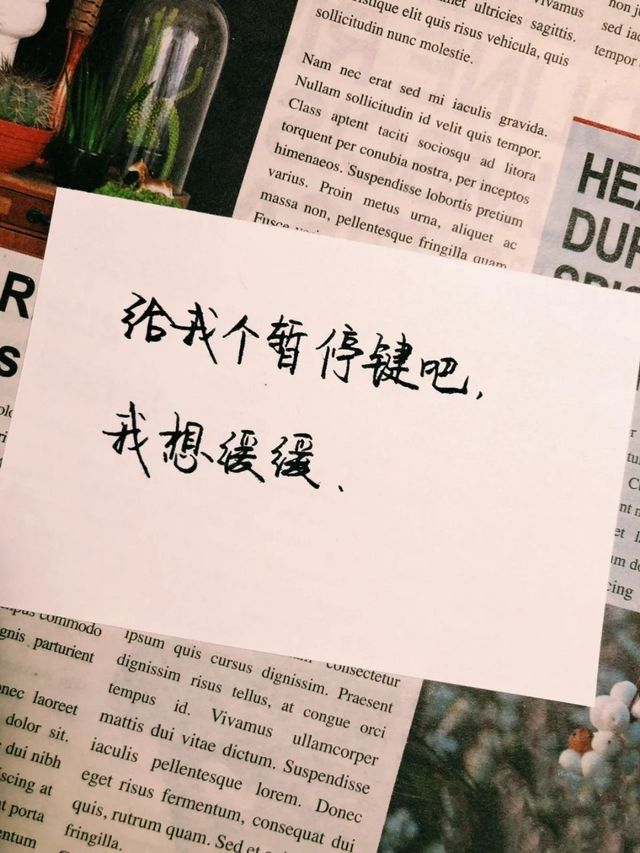 istique elit quis risus vehicula, quis
sollicitudin nunc molestie.
Nam nec erat sed mi iaculis gravida.
Nullam sollicitudin id velit quis tempor.
Class aptent taciti sociosqu ad litora
torquent per conubia nostra, per inceptos
himenaeos. Suspendisse lobortis pretium
varius. Proin metus urna, aliquet ac
massa non, pellentesque fringilla quam.
Fusce
ultricies sagittis.
Vivamus
non
sed
tempor
HEA
DUR
R
S
给我个暂停键吧,
我想缓缓、
commodo
gnis parturient
nec laoreet
dolor sit.
dui nibh
iscing at
porta
entum
ipsum quis cursus dignissim.
consectetur
dignissim risus tellus, at congue orci
Praesent
tempus id. Vivamus ullamcorper
mattis dui vitae dictum. Suspendisse
iaculis pellentesque lorem. Donec
eget risus fermentum, consequat dui
quis, rutrum quam. Sed et
fringilla.